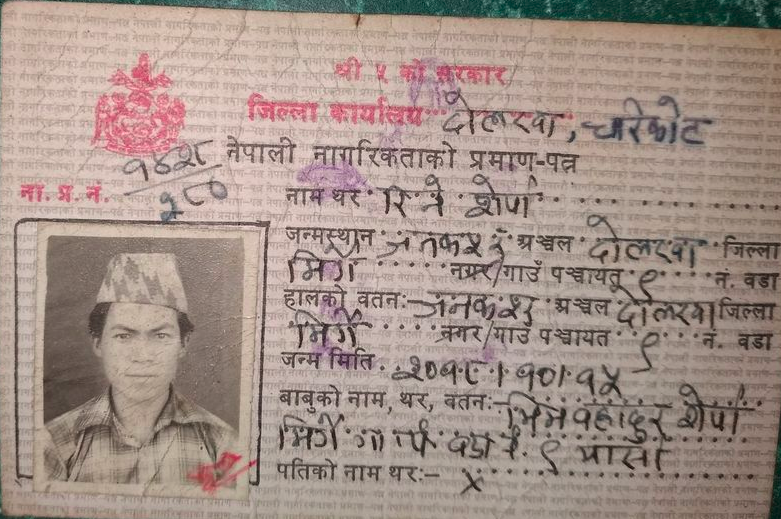 श्री ५ को सरकार
जिल्ला कार्यालय दोलखा, चरिकोट
नेपाली नागरिकताको प्रमाण-पत्र
ना. प्र. नं.
नाम थर रिने शेर्पा
जन्मस्थान जनकपुर अञ्चल दोलखा जिल्ला
मिर्गे नगर/गाउँ पञ्चायत ९ नं. वडा
हालको वतन:- जनकपुर अञ्चल दोलखा जिल्ला
मिर्गे नगर/गाउँ पञ्चायत ९ नं. वडा
जन्म मिति २०१८।१०।१५
बाबुको नाम, थर, वतन:- भिम बहादुर शेर्पा
मिर्गे गा पं वडा नं. ९
पतिको नाम थर:- ×